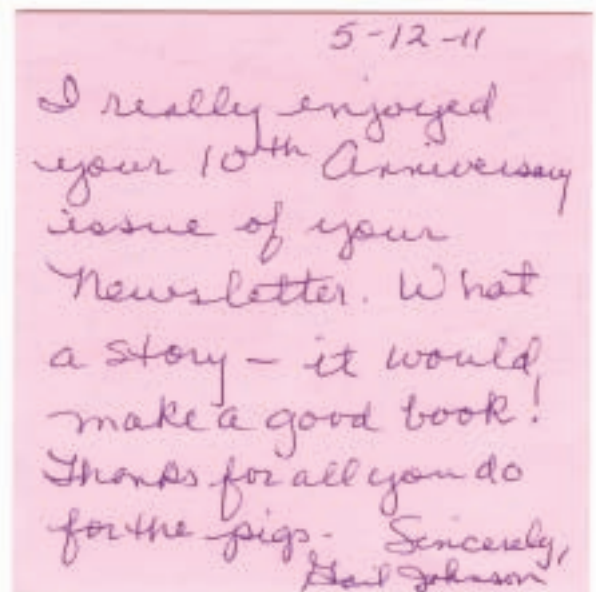 5-12-11
I really enjoyed
your 10th Anniversary
issue of your
Newsletter. What
a story - it would
make a good book!
Thanks for all you do
for the pigs. Sincerely,
Gail Johnson